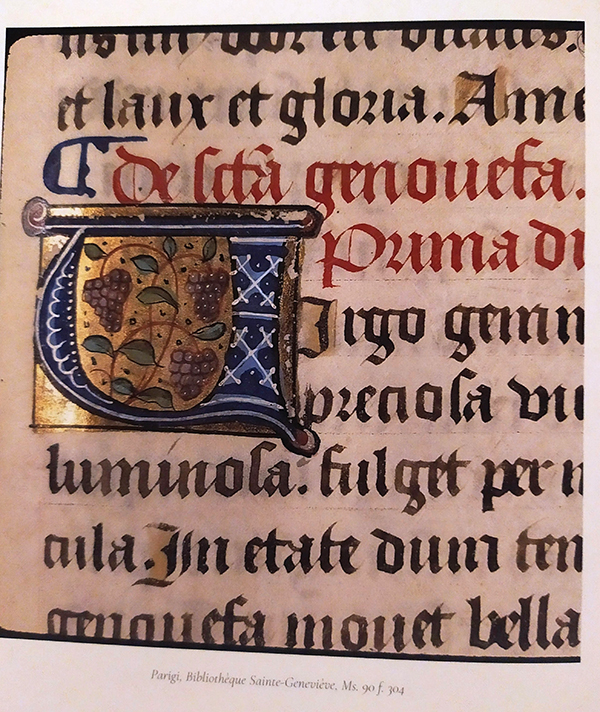 et laux et gloria. Ame
De scta genouefa.
Prima di
VIrgo gem
preciosa
luminosa: fulget per
cula. In etate dum ten
genouefa mouet bella
Parigi, Bibliothèque Sainte-Geneviève, Ms. 90 f. 304